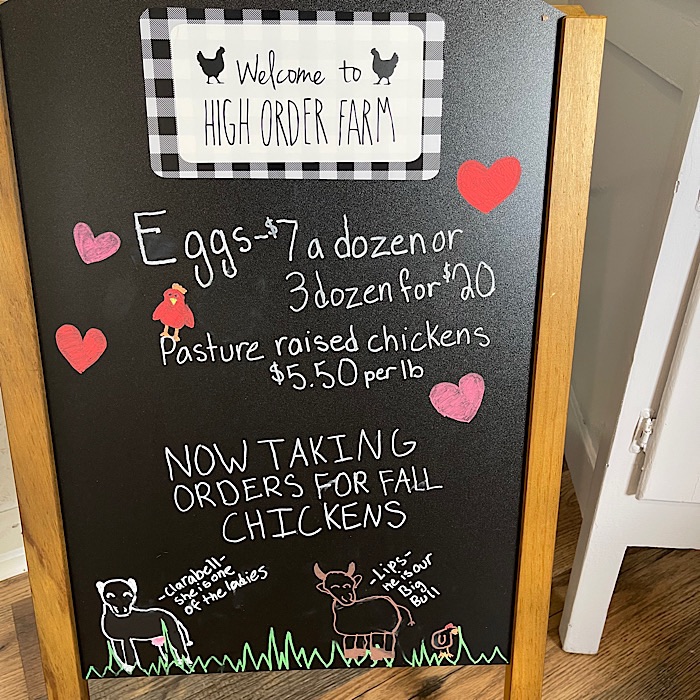 Welcome to
HIGH ORDER FARM
Eggs-$7 a dozen or
3 dozen for $20
Pasture raised chickens
$5.50 per lb
NOW TAKING
ORDERS FOR FALL
CHICKENS
-Clarabell-
she is one
of the ladies
-Lips-
he is our
Big
Bull